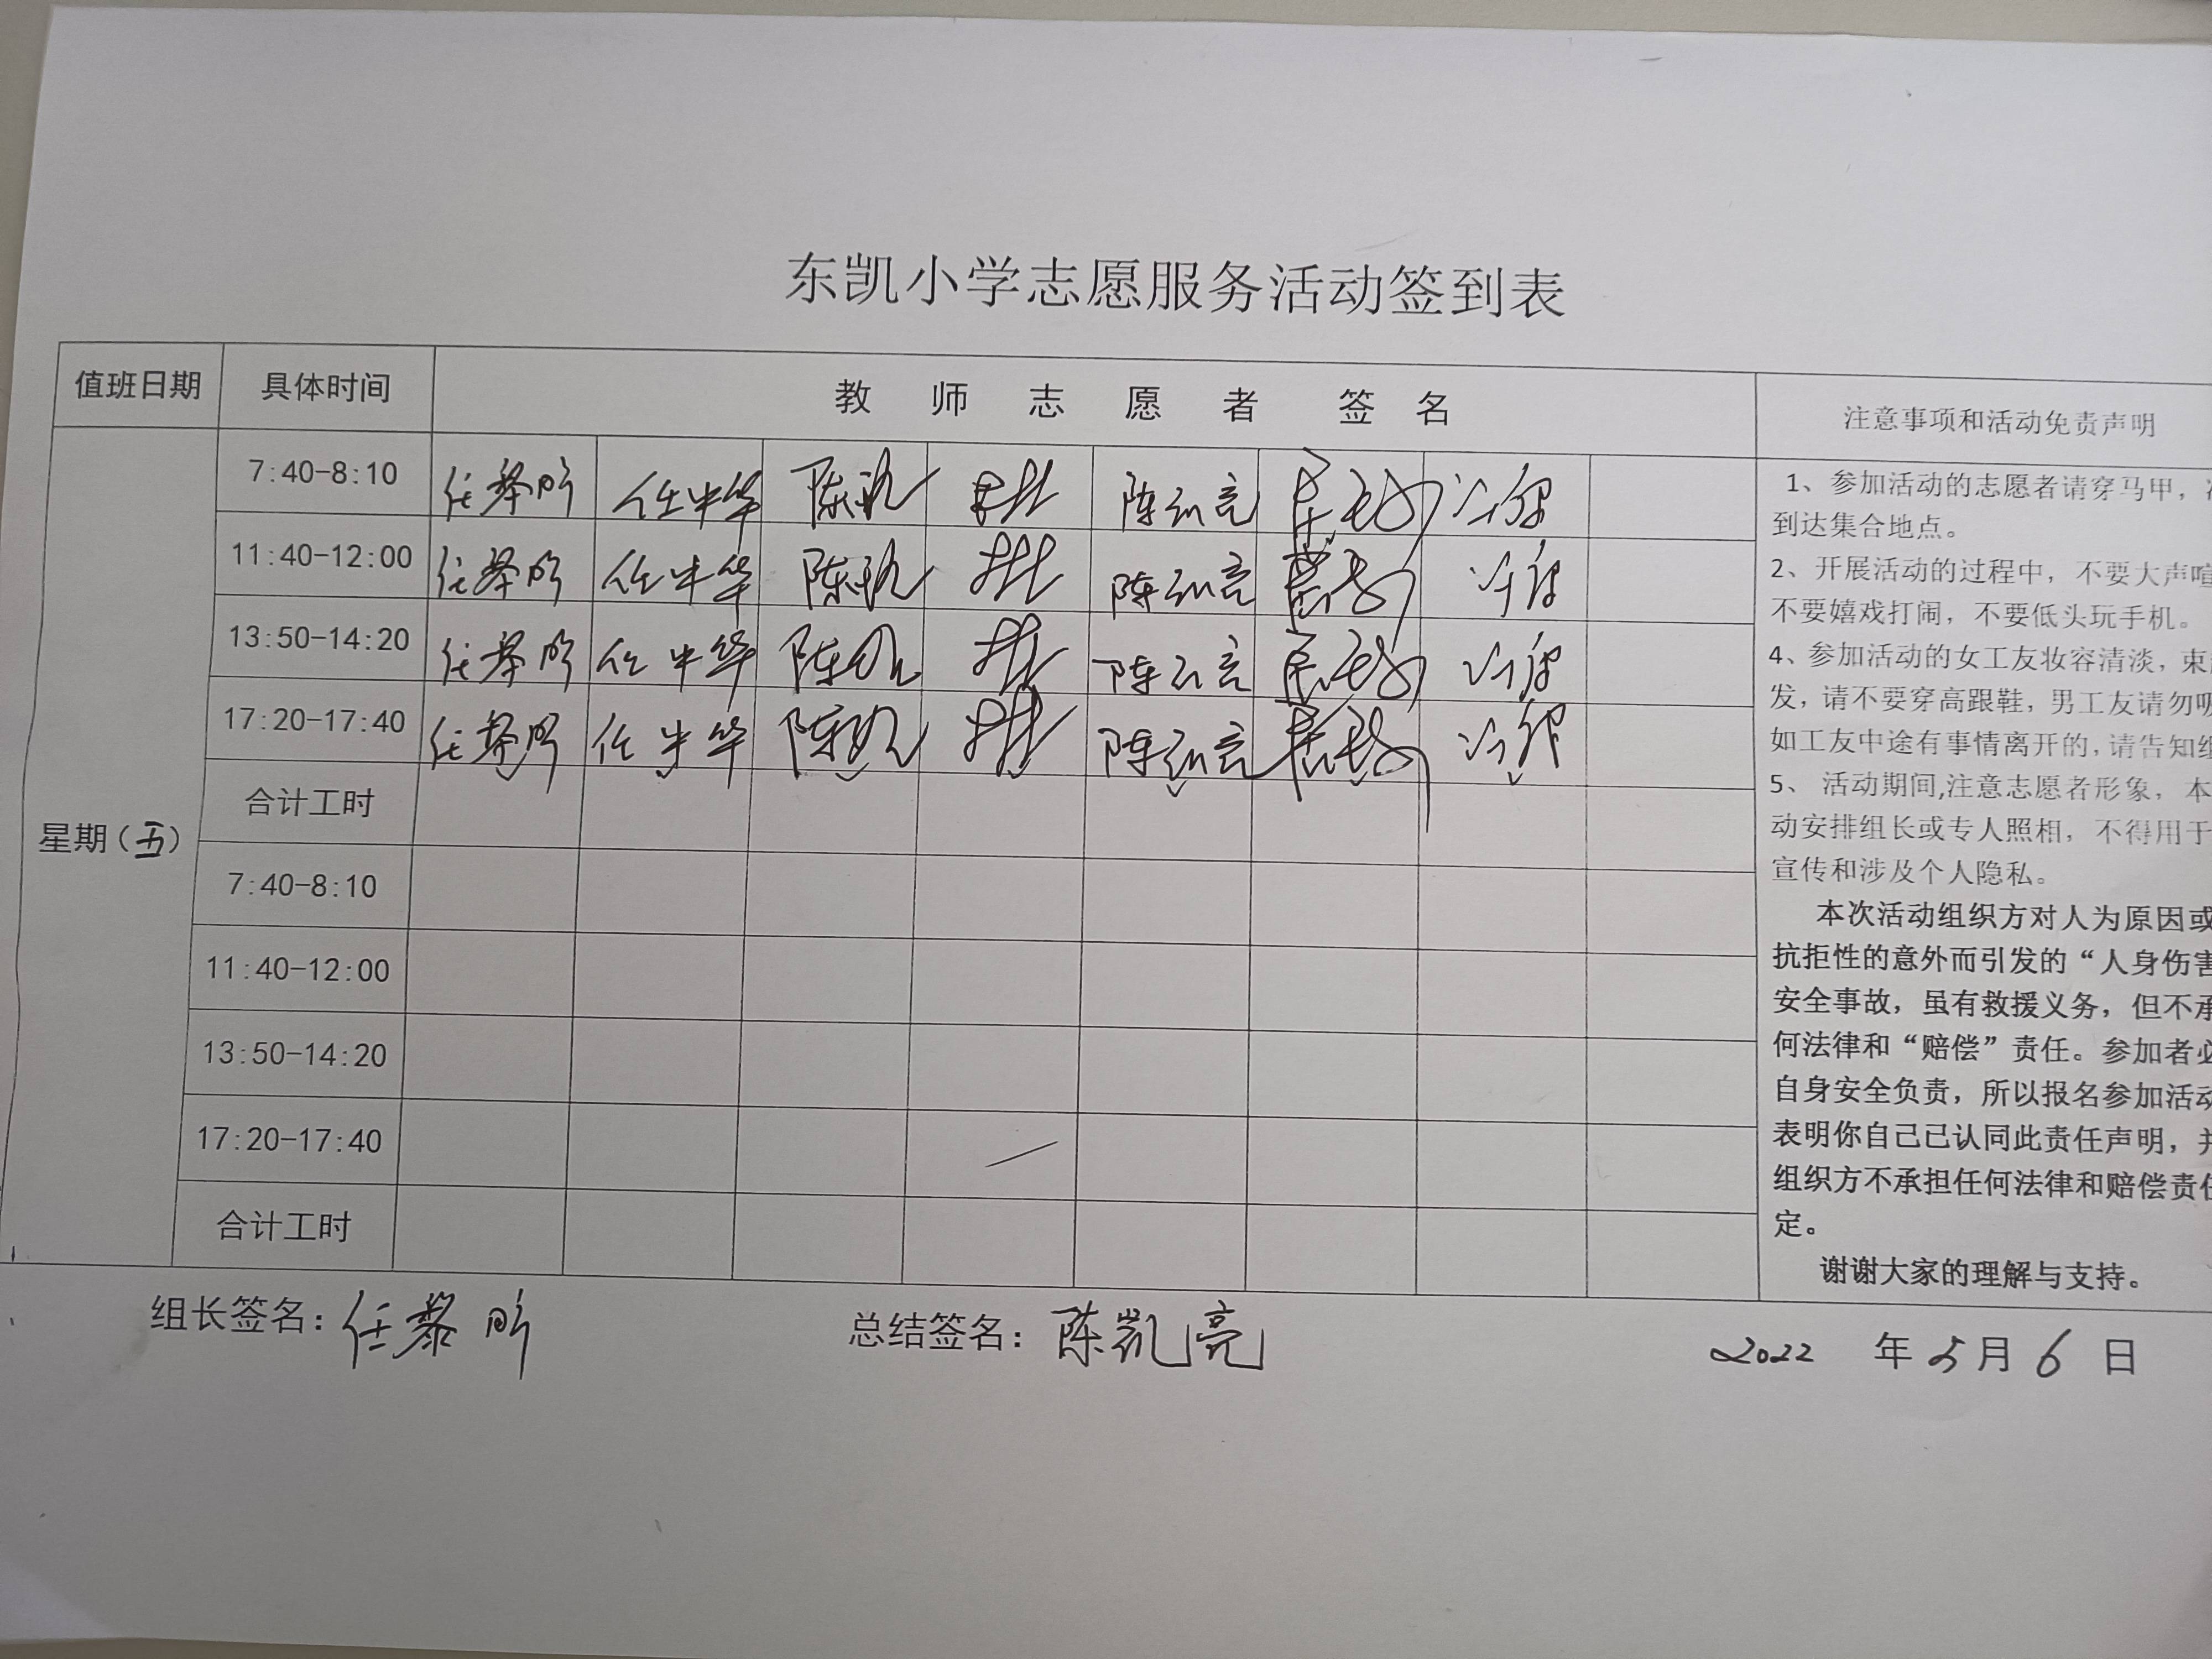 东凯小学志愿服务活动签到表
值班日期 具体时间 教师志愿者签名 注意事项和活动免责声明
7:40-8:10 任黎昕 任中华 陈 陈凯亮
11:40-12:00 任黎昕 任中华 陈 陈凯亮
13:50-14:20 任黎昕 任中华 陈 陈凯亮
17:20-17:40 任黎昕 任中华 陈 陈凯亮
合计工时
星期(五)
7:40-8:10
11:40-12:00
13:50-14:20
17:20-17:40
合计工时
1、参加活动的志愿者请穿马甲，
到达集合地点。
2、开展活动的过程中，不要大声喧
不要嬉戏打闹，不要低头玩手机。
4、参加活动的女工友妆容清淡，束
发，请不要穿高跟鞋，男工友请勿吸
如工友中途有事情离开的,请告知组
5、 活动期间,注意志愿者形象，本
动安排组长或专人照相，不得用于
宣传和涉及个人隐私。
本次活动组织方对人为原因或
抗拒性的意外而引发的“人身伤害
安全事故，虽有救援义务，但不承
何法律和“赔偿”责任。参加者必
自身安全负责，所以报名参加活动
表明你自己已认同此责任声明，并
组织方不承担任何法律和赔偿责任
定。
谢谢大家的理解与支持。
组长签名：任黎昕 总结签名：陈凯亮 2022 年 5 月 6 日